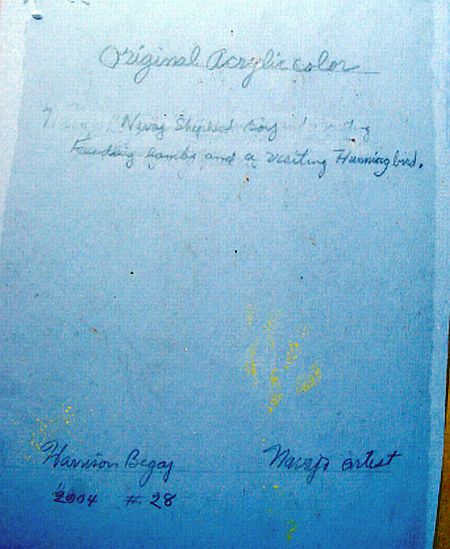 Original Acrylic color
Navaj Shepherd Boy
Feeding lambs and a visiting Hunning bird.
Harrison Begay Navajo artist
2004 # 28